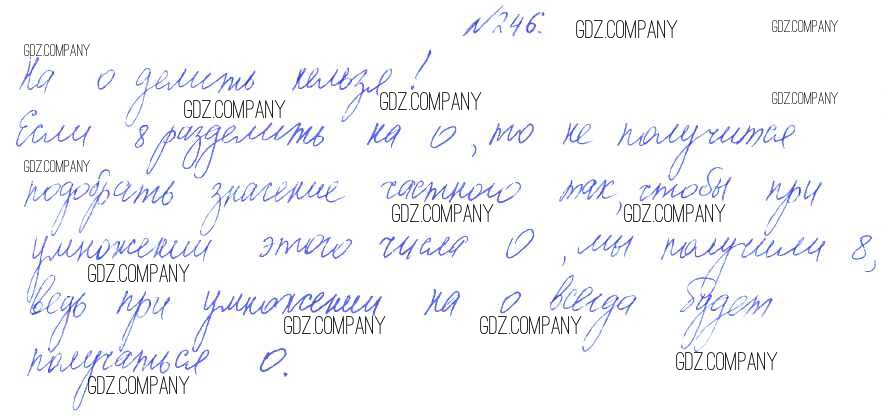 №246.
GDZ.COMPANY
GDZ.COMPANY
GDZ.COMPANY
На 0 делить нельзя!
GDZ.COMPANY
GDZ.COMPANY
GDZ.COMPANY
Если 8 разделить на 0, то не получится
GDZ.COMPANY
подобрать значение частного так, чтобы при
GDZ.COMPANY
GDZ.COMPANY
умножении этого числа 0, мы получили 8,
GDZ.COMPANY
ведь при умножении на 0 всегда будет
GDZ.COMPANY
GDZ.COMPANY
получаться 0.
GDZ.COMPANY
GDZ.COMPANY